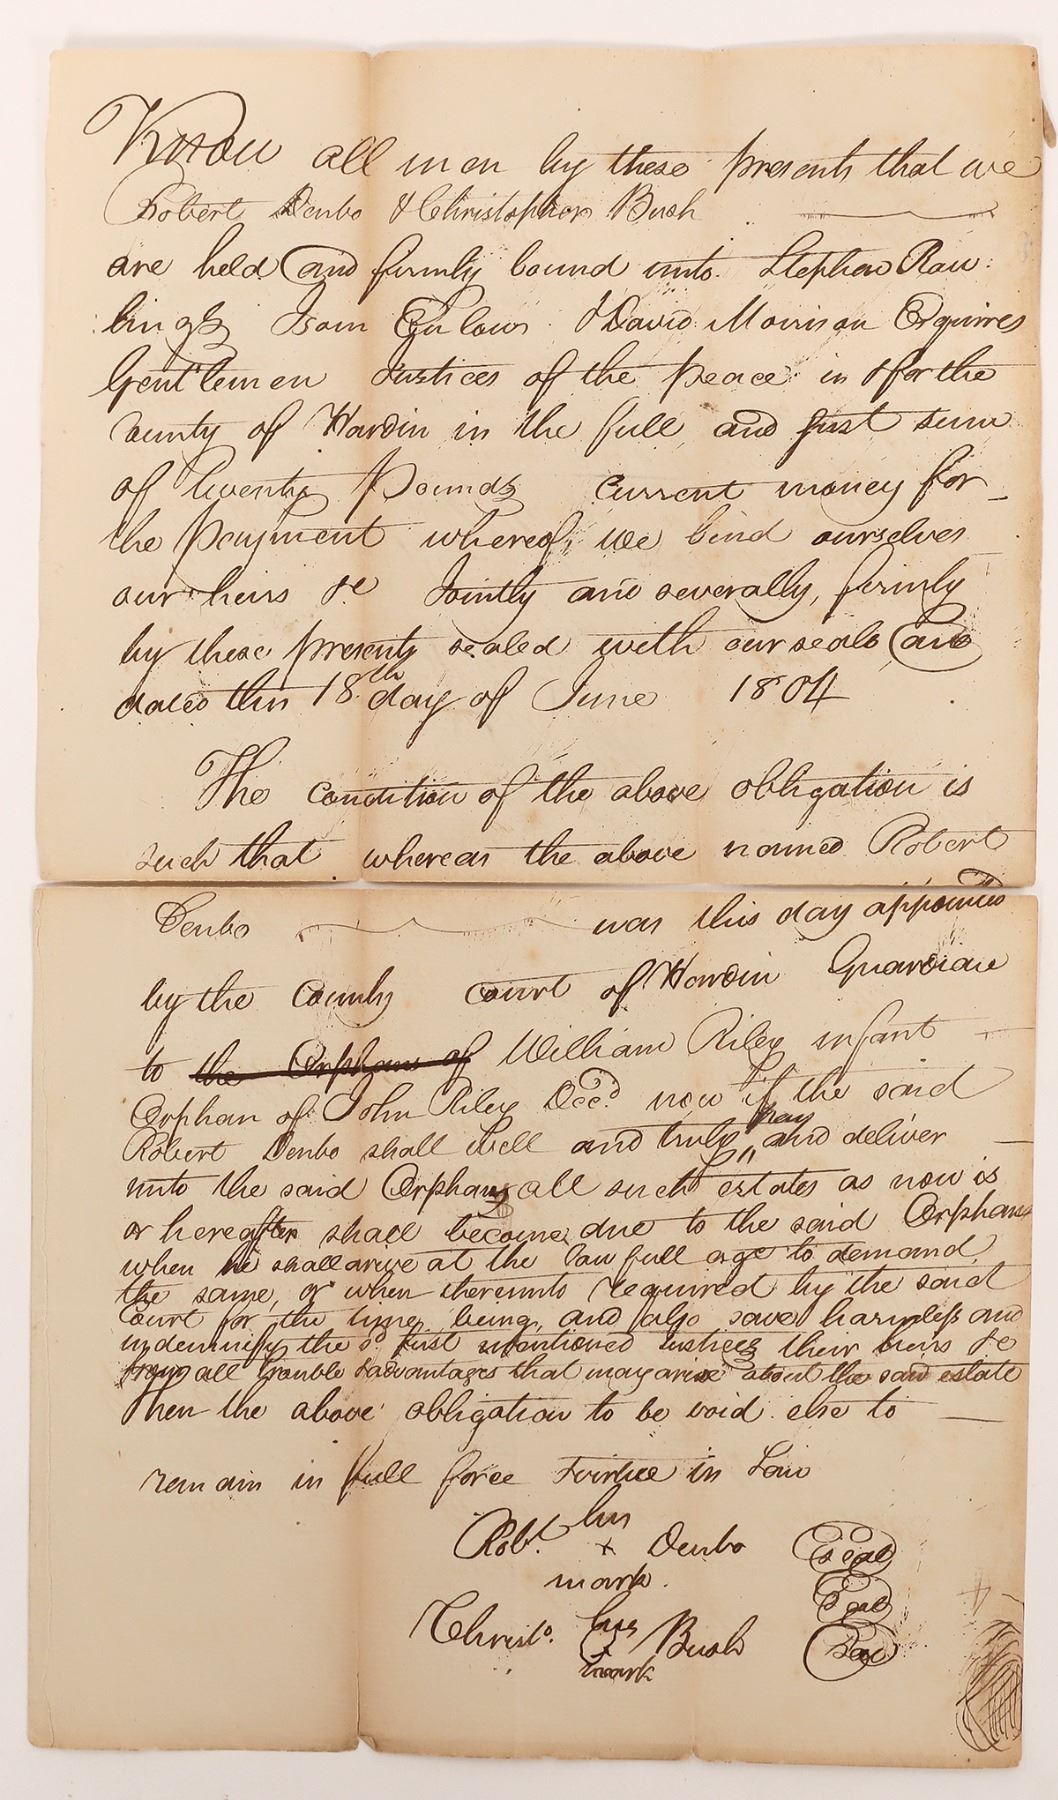 Know all men by these presents that we
Robert Denbo & Christopher Bush
are held and firmly bound unto Stephen Raw
lings Isom Enlows & David Morrison Esquires
Gentlemen Justices of the peace in & for the
County of Hardin in the full and just sum
of twenty Pounds current money for
the payment whereof, we bind ourselves
our heirs &c Jointly and severally, firmly
by these presents sealed with our seals and
dated this 18th day of June 1804
The condition of the above obligation is
such that whereas the above named Robert
Denbo was this day appointed
by the County court of Hardin Guardian
to the Orphans of William Riley infant
Orphan of John Riley Decd. now if the said
Robert Denbo shall well and truly pay and deliver
unto the said Orphan all such estates as now is
or hereafter shall become due to the said Orphan
when he shall arive at the lawfull age to demand
the same, or when thereunto required by the said
Court for the time being, and also save harmless and
indemnify the sd. first mentioned Justices their heirs &c
from all trouble & advantages that may arise about the said estate
Then the above obligation to be void else to
remain in full force & virtue in Law
his
Robt. x Denbo Seal
mark.
Seal
his
Christo. Bush Seal
mark